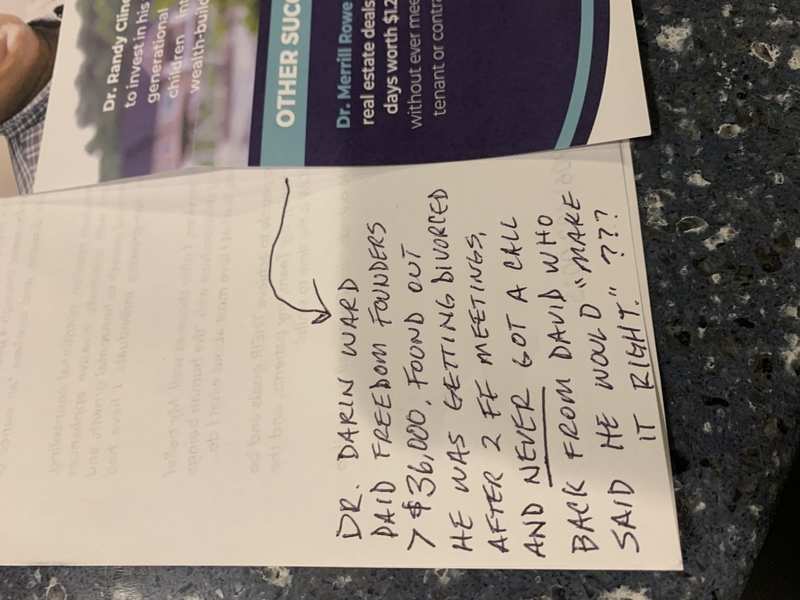 Dr. Randy Cline
to invest in his
generational
children int
wealth-build
OTHER SUCC
Dr. Merrill Rowe
real estate deals
days worth $12
without ever mee
tenant or contra
DR. DARIN WARD
PAID FREEDOM FOUNDERS
>$36,000, FOUND OUT
HE WAS GETTING DIVORCED
AFTER 2 FF MEETINGS,
AND NEVER GOT A CALL
BACK FROM DAVID WHO
SAID HE WOULD "MAKE
IT RIGHT." ???